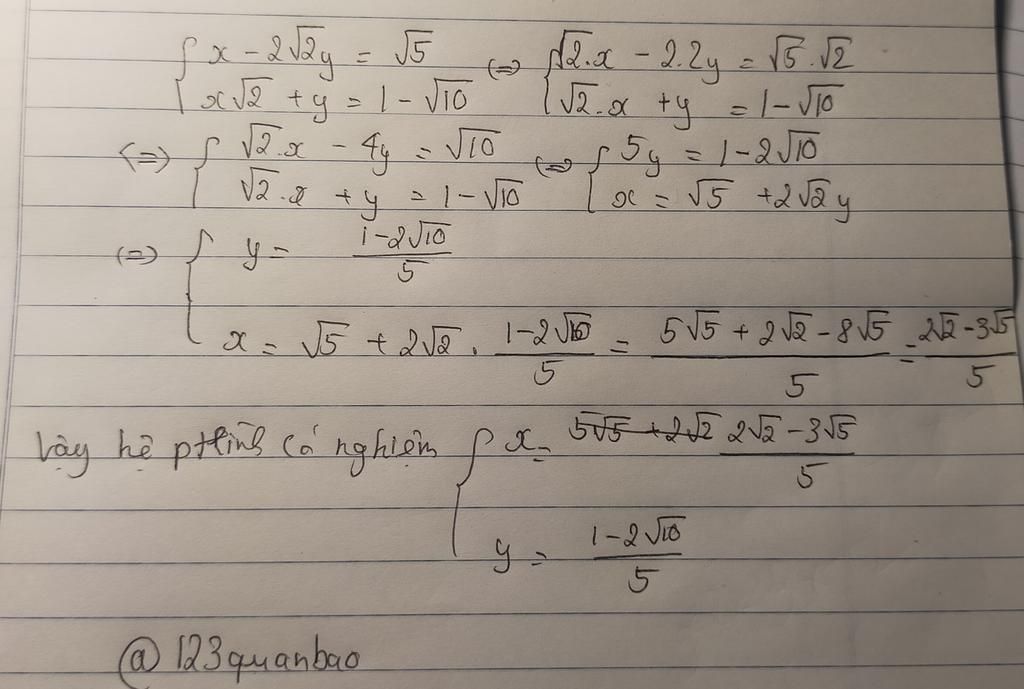 { x - 2√2y = √5 ⇔ { √2.x - 2.2y = √5.√2
{ x√2 + y = 1 - √10 { √2.x + y = 1 - √10
⇔ { √2.x - 4y = √10 ⇔ { 5y = 1 - 2√10
{ √2.x + y = 1 - √10 { x = √5 + 2√2y
⇔ { y = (1 - 2√10)/5
{ x = √5 + 2√2 . (1 - 2√10)/5 = (5√5 + 2√2 - 8√5)/5 = (2√2 - 3√5)/5
Vậy hệ pttình có nghiệm { x = 5√5 + 2√2 (2√2 - 3√5)/5
{ y = (1 - 2√10)/5
@123quanbao